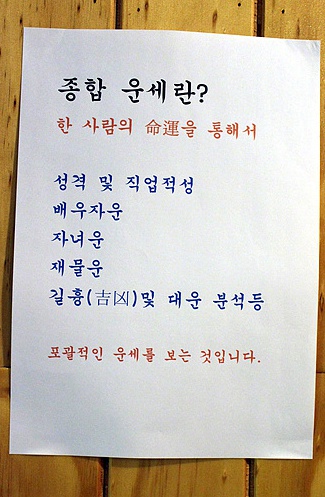 종합 운세란?
한 사람의 命運을 통해서
성격 및 직업적성
배우자운
자녀운
재물운
길흉(吉凶)및 대운 분석등
포괄적인 운세를 보는 것입니다.